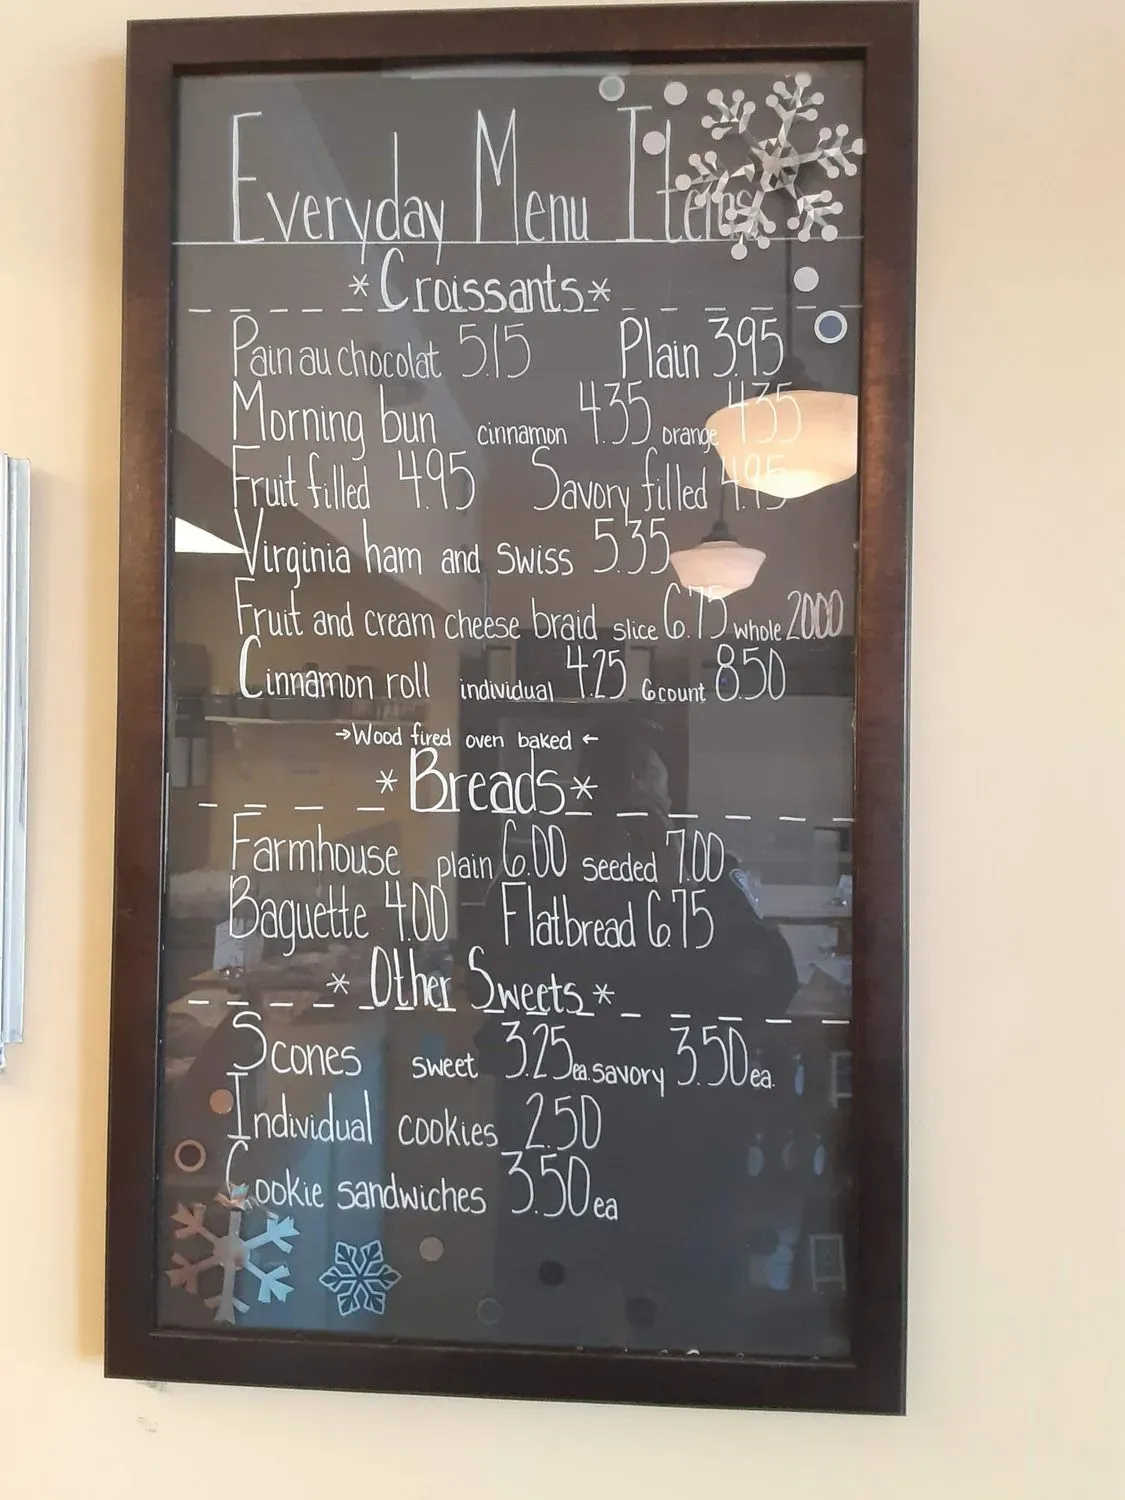 Everyday Menu Items
*Croissants*
Pain au chocolat 5.15 Plain 3.95
Morning bun cinnamon 4.35 orange 4.35
Fruit filled 4.95 Savory filled 4.95
Virginia ham and swiss 5.35
Fruit and cream cheese braid slice 6.75 whole 20.00
Cinnamon roll individual 4.25 6 count 8.50
→Wood fired oven baked←
*Breads*
Farmhouse plain 6.00 seeded 7.00
Baguette 4.00 Flatbread 6.75
*Other Sweets*
Scones sweet 3.25 ea. savory 3.50 ea.
Individual cookies 2.50
Cookie sandwiches 3.50 ea